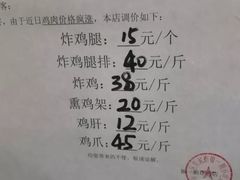 客:
于近日鸡肉价格疯涨，本店调价如下:
炸鸡腿: 15元/个
炸鸡腿排: 40元/斤
炸鸡: 38元/斤
熏鸡架: 20元/斤
鸡肝: 12元/斤
鸡爪: 45元/斤
给您带来的不便，敬请谅解。